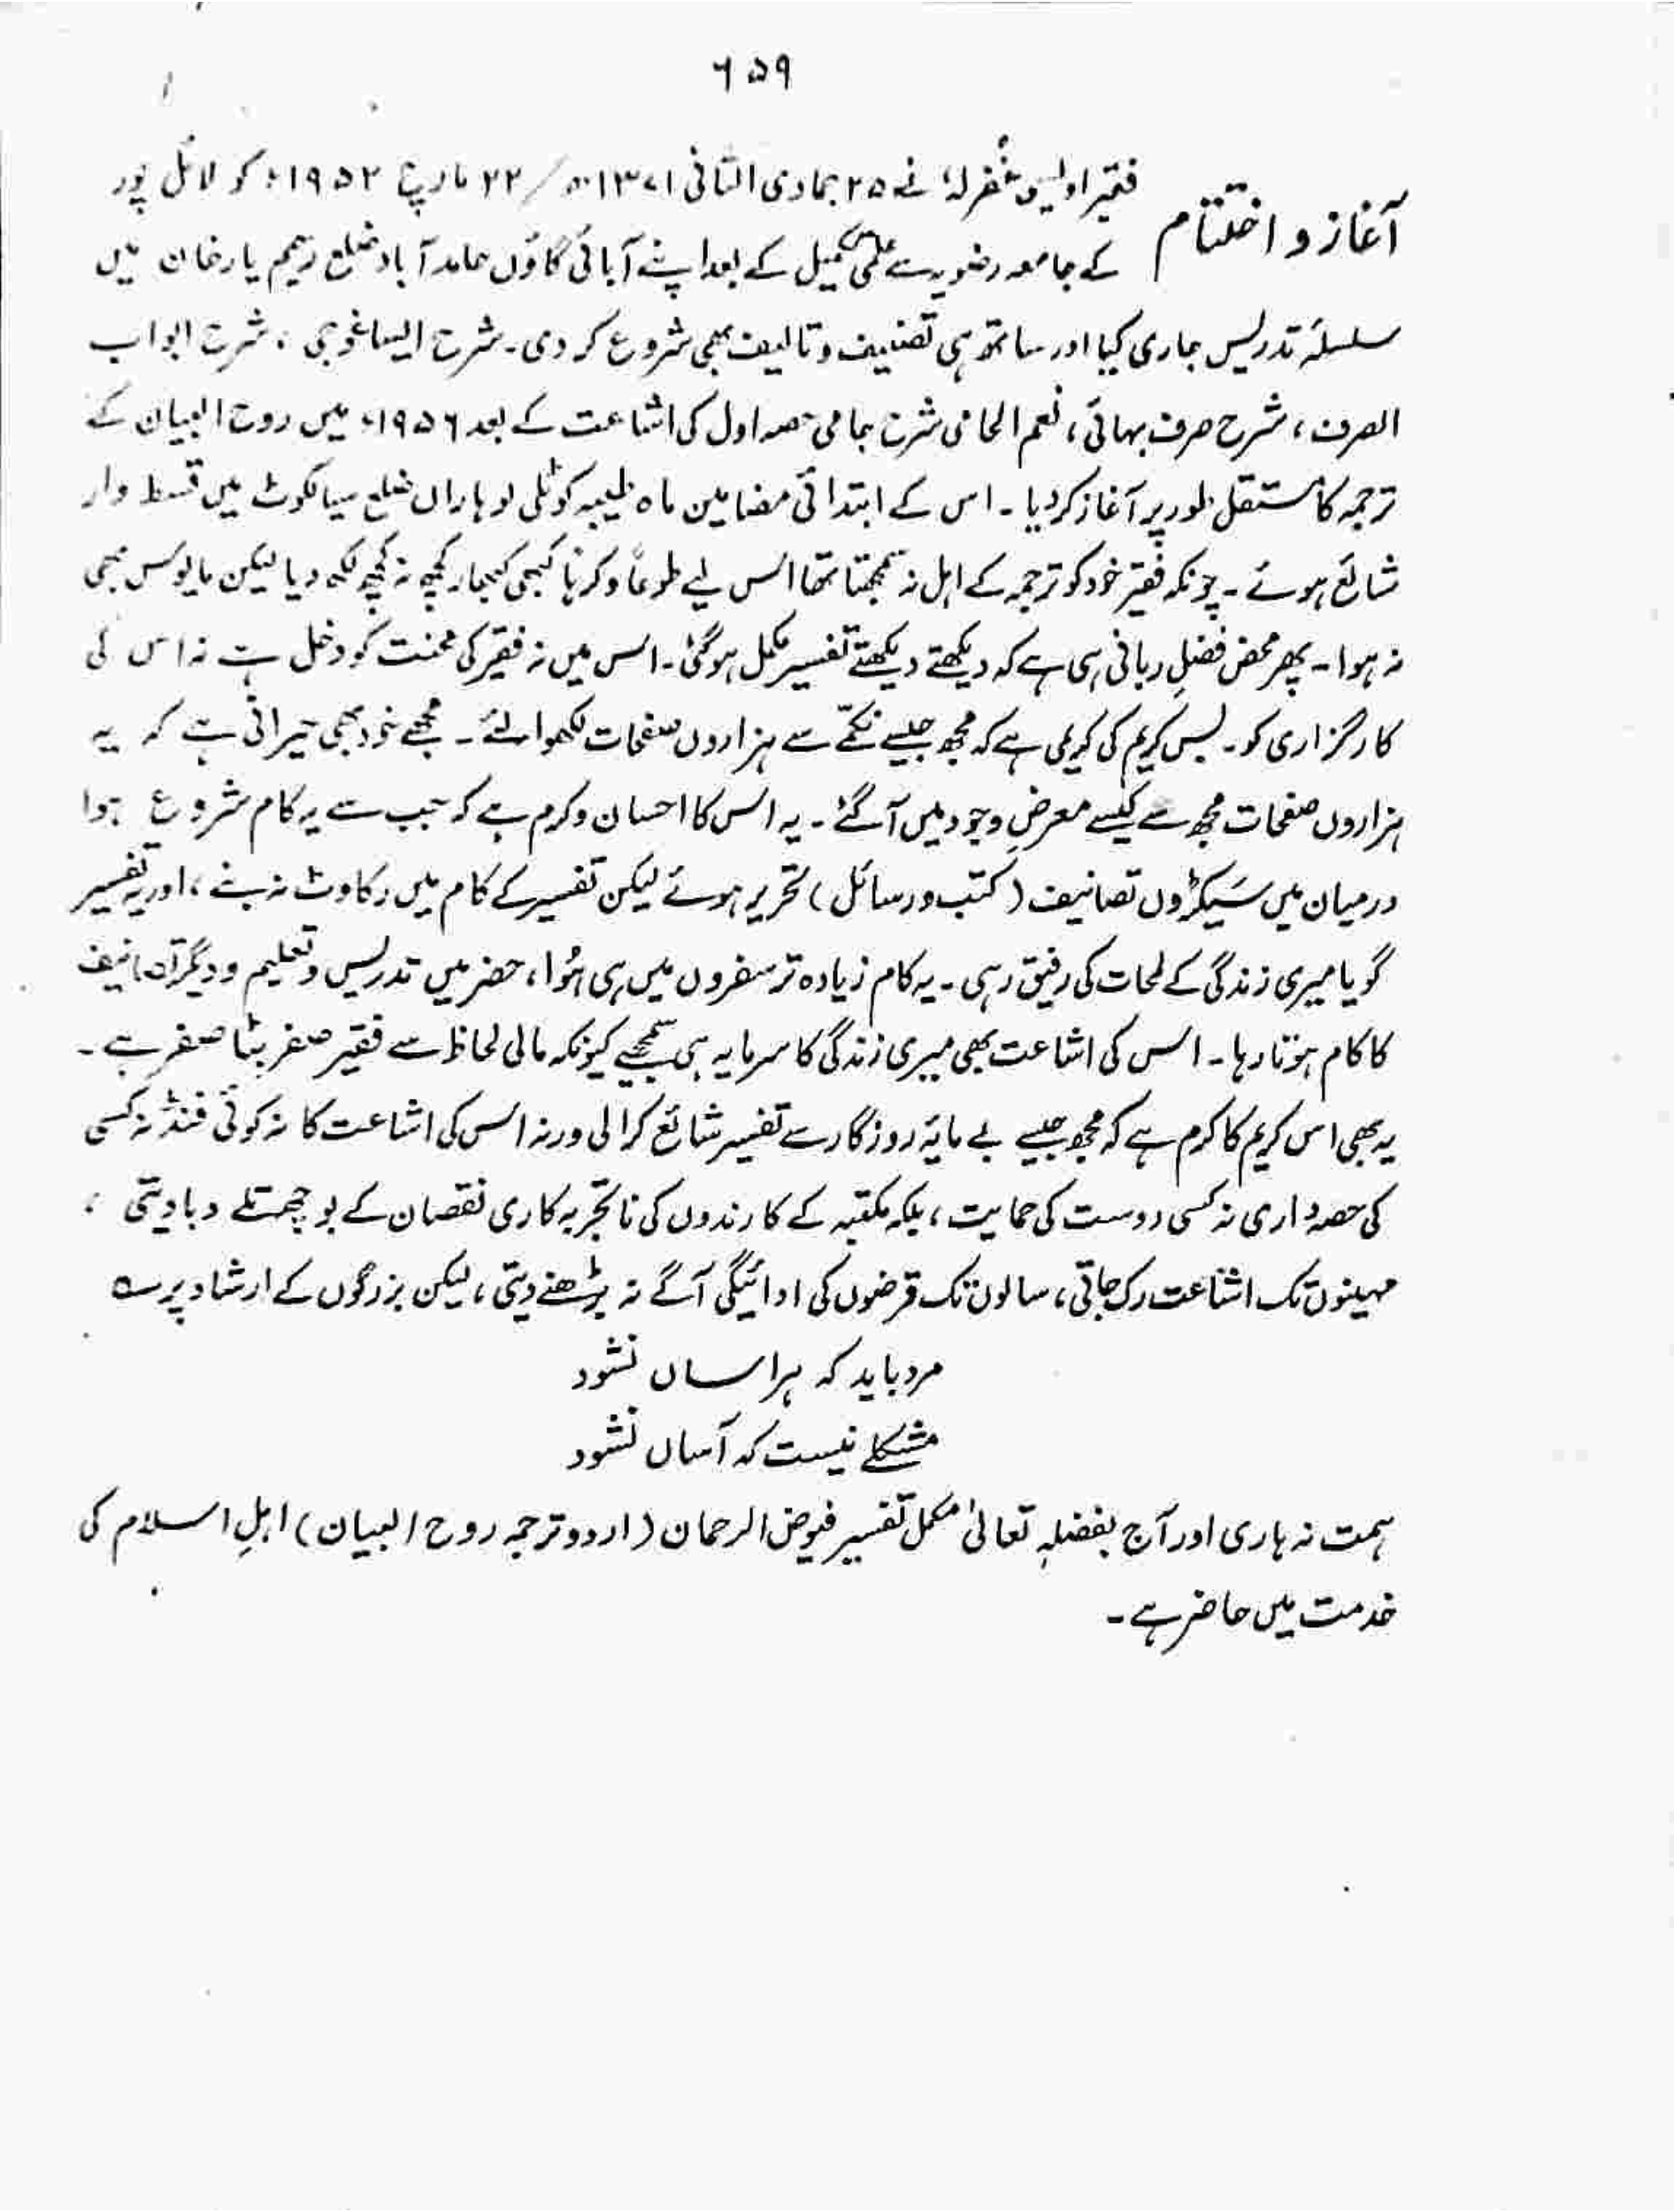 ۶۵۹
آغاز و اختتام
فقیر اویسی غفرلہٗ نے ۲۵ جمادی الثانی ۱۳۷۱ھ / ۲۲ مارچ ۱۹۵۲ء کو لائل پور
کے جامعہ رضویہ سے علمی تکمیل کے بعد اپنے آبائی گاؤں حامد آباد ضلع رحیم یار خان میں
سلسلۂ تدریس جاری کیا اور ساتھ ہی تصنیف و تالیف بھی شروع کر دی۔ شرح ایساغوجی ، شرح ابواب
الصرف ، شرح صرف بہائی ، نعم الحامی شرح جامی حصہ اول کی اشاعت کے بعد ۱۹۵۶ء میں روح البیان کے
ترجمہ کا مستقل طور پر آغاز کر دیا ۔ اس کے ابتدائی مضامین ماہ طیبہ کوٹلی لوہاراں ضلع سیالکوٹ میں قسط وار
شائع ہوئے ۔ چونکہ فقیر خود کو ترجمہ کے اہل نہ سمجھتا تھا اس لیے طوعاً و کرہاً کبھی کبھار کچھ نہ کچھ لکھ دیا لیکن مایوس بھی
نہ ہوا ۔ پھر محض فضلِ ربانی ہی ہے کہ دیکھتے دیکھتے تفسیر مکمل ہو گئی ۔ اس میں نہ فقیر کی محنت کو دخل ہے نہ اس کی
کارگزاری کو ۔ بس کریم کی کریمی ہے کہ مجھ جیسے نکمّے سے ہزاروں صفحات لکھوا لئے ۔ مجھے خود بھی حیرانی ہے کہ یہ
ہزاروں صفحات مجھ سے کیسے معرضِ وجود میں آ گئے ۔ یہ اس کا احسان و کرم ہے کہ جب سے یہ کام شروع ہوا
درمیان میں سَیکڑوں تصانیف ( کتب و رسائل ) تحریر ہوئے لیکن تفسیر کے کام میں رکاوٹ نہ بنے ، اور یہ تفسیر
گویا میری زندگی کے لمحات کی رفیق رہی ۔ یہ کام زیادہ تر سفروں میں ہی ہُوا ، حضر میں تدریس و تعلیم و دیگر تصانیف
کا کام ہوتا رہا ۔ اس کی اشاعت بھی میری زندگی کا سرمایہ ہی سمجھیے کیونکہ مالی لحاظ سے فقیر صفر بٹا صفر ہے ۔
یہ بھی اس کریم کا کرم ہے کہ مجھ جیسے بے مایۂ روزگار سے تفسیر شائع کرا لی ورنہ اس کی اشاعت کا نہ کوئی فنڈ نہ کسی
کی حصہ داری نہ کسی دوست کی حمایت ، بلکہ مکتبہ کے کارندوں کی ناتجربہ کاری نقصان کے بوجھ تلے دبا دیتی ،
مہینوں تک اشاعت رک جاتی ، سالوں تک قرضوں کی ادائیگی آگے نہ بڑھنے دیتی ، لیکن بزرگوں کے ارشاد پر ؎
مرد باید کہ ہراساں نشود
مشکلے نیست کہ آساں نشود
ہمت نہ ہاری اور آج بفضلہٖ تعالیٰ مکمل تفسیر فیوض الرحمان ( اردو ترجمہ روح البیان ) اہلِ اسلام کی
خدمت میں حاضر ہے ۔